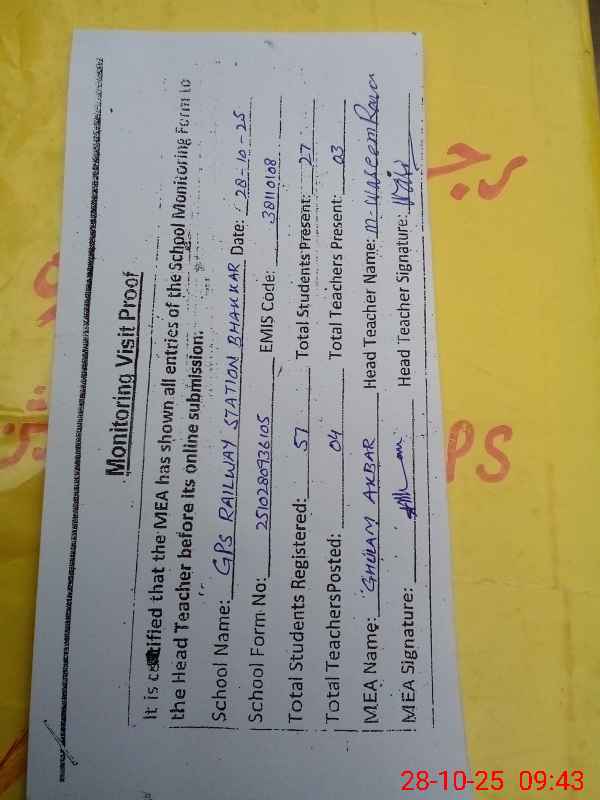 Monitoring Visit Proof
It is certified that the MEA has shown all entries of the School Monitoring Form to
the Head Teacher before its online submission.
School Name: GPS RAILWAY STATION BHAKKAR Date: 28-10-25
School Form No: 2510280936105 EMIS Code: 38110108
Total Students Registered: 57 Total Students Present: 27
Total TeachersPosted: 04 Total Teachers Present: 03
MEA Name: GHULAM AKBAR Head Teacher Name: M. Waseem
MEA Signature: Head Teacher Signature:
PS
28-10-25 09:43